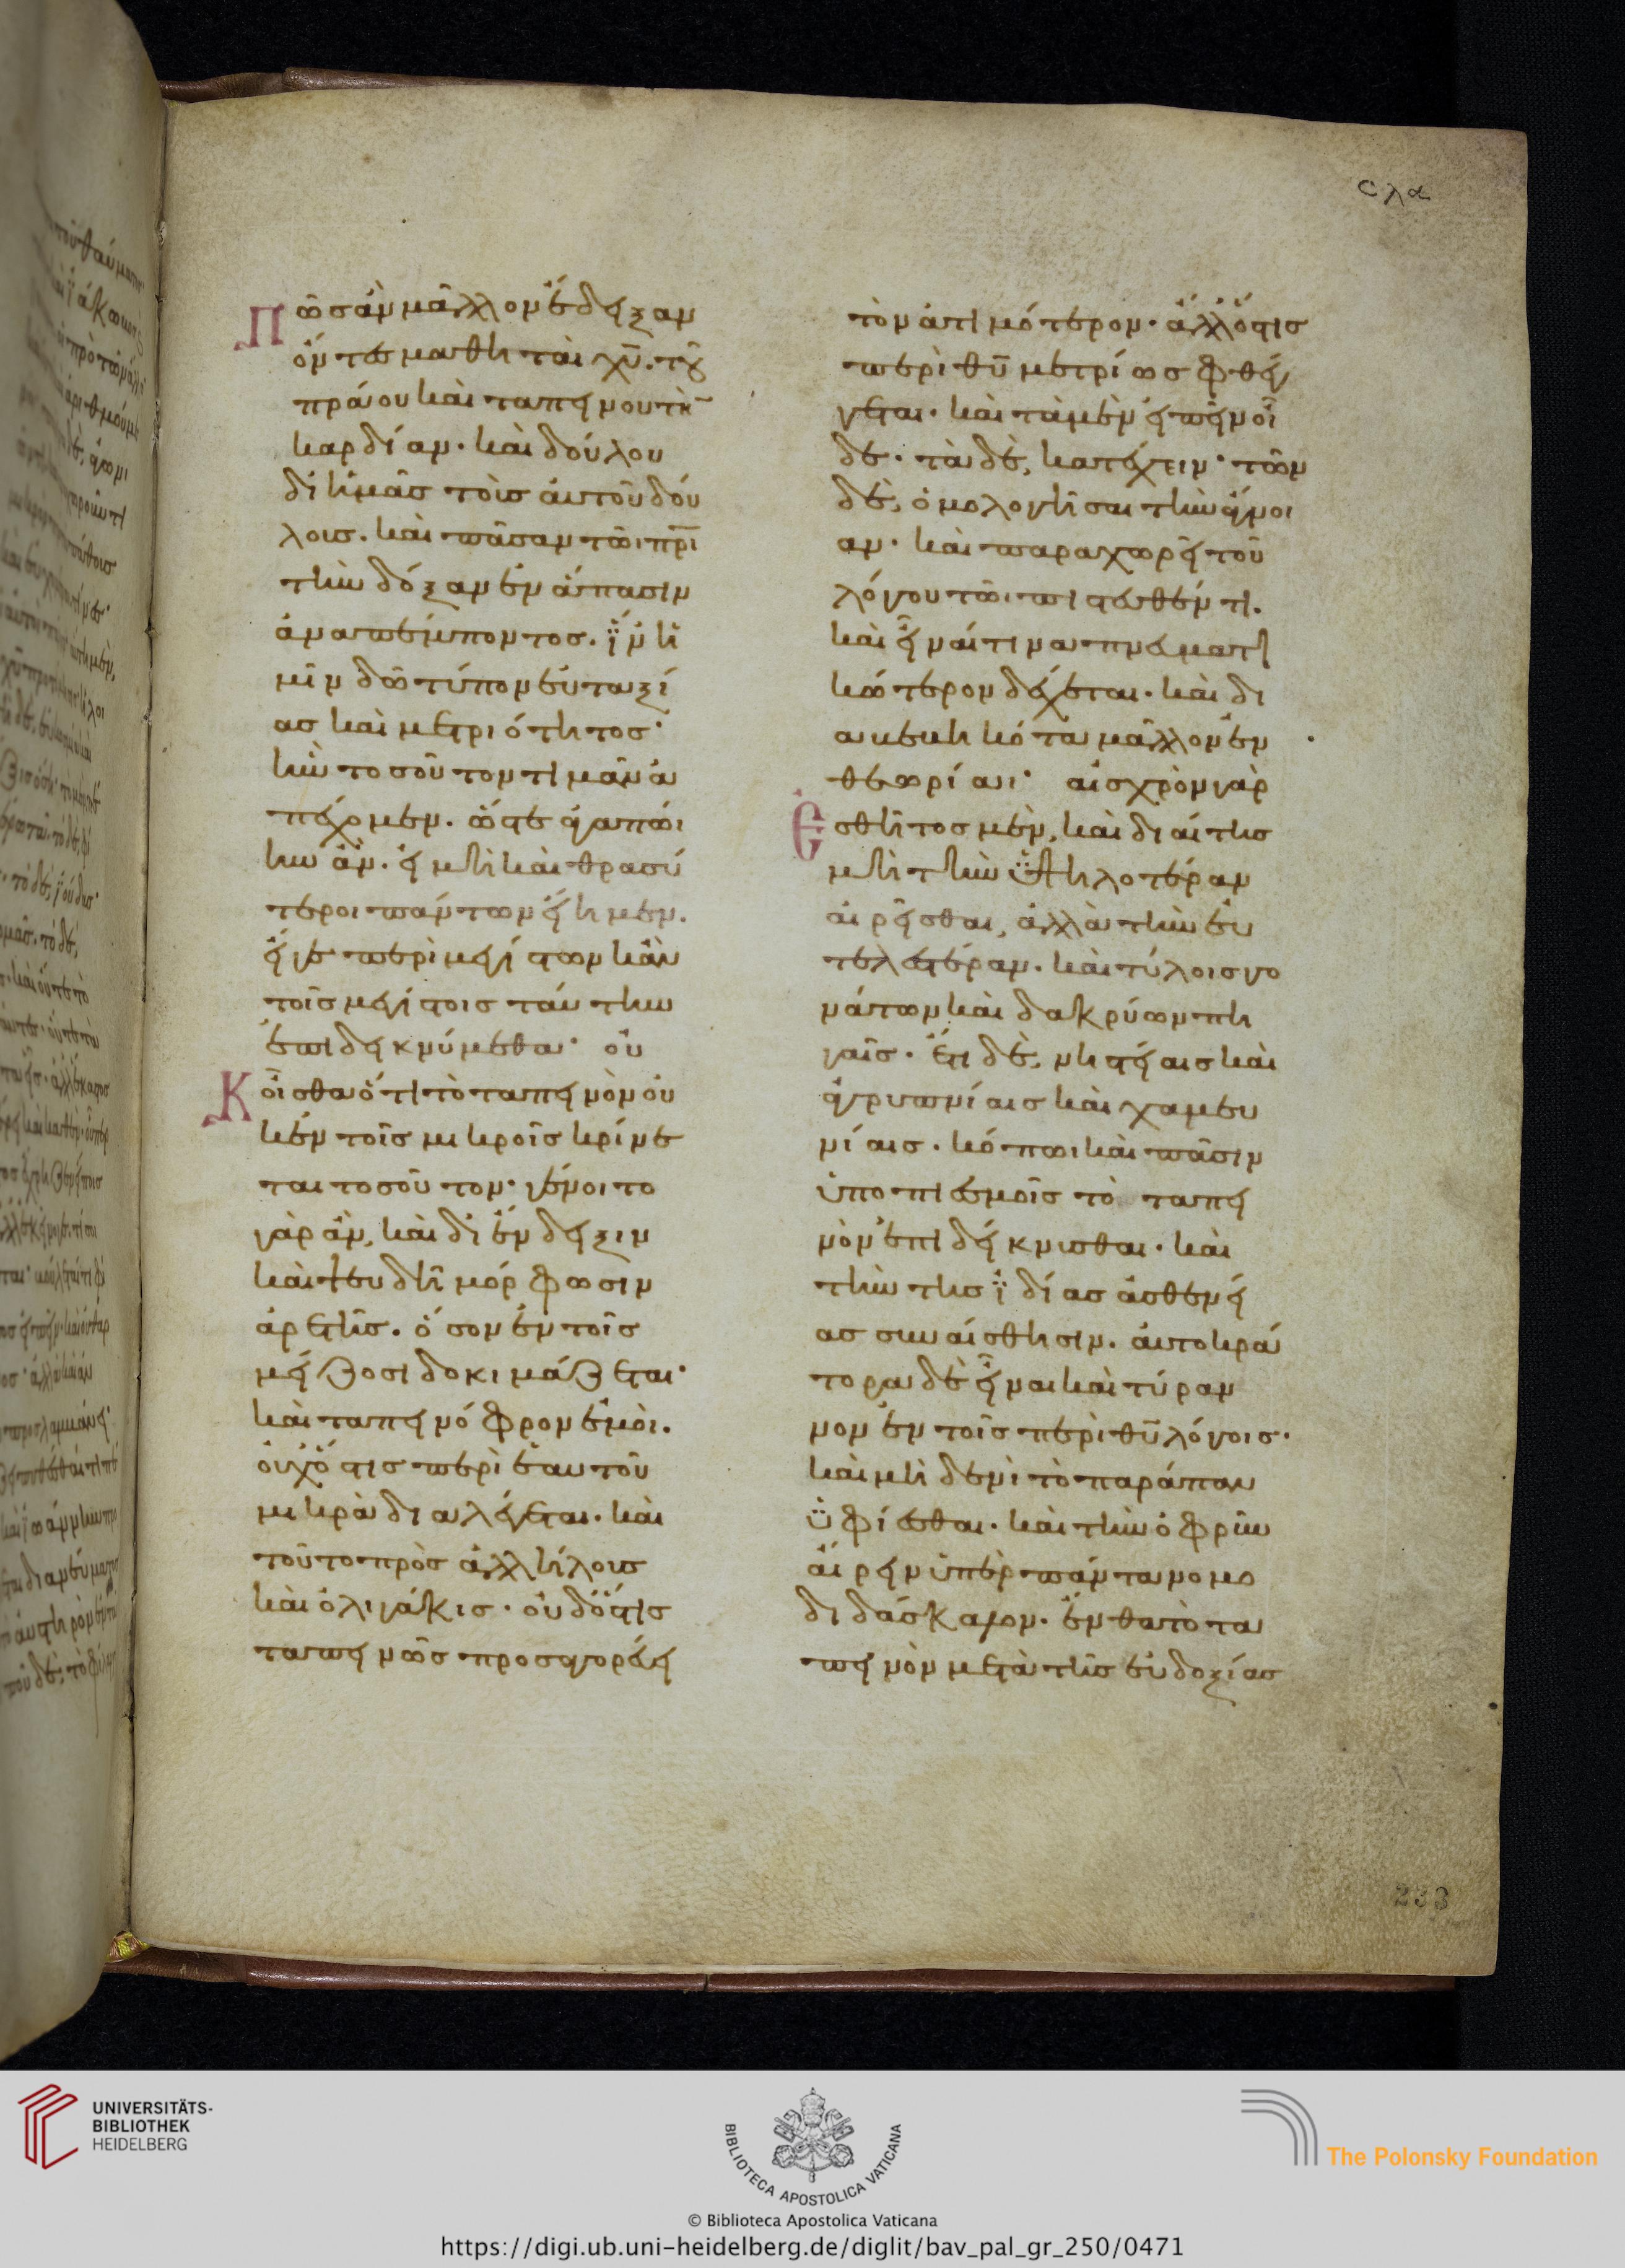 σλα
Πῶς ἂν μᾶλλον ἐδείξαν
ὄντες μαθηταὶ χυ̅. τοῦ
πράου καὶ ταπεινοῦ τὴν
καρδίαν· καὶ δούλου
δι ἡμᾶς τοῖς αὐτοῦ δού
λοις. καὶ πᾶσαν τῶι πρι̅
τὴν δόξαν ἐν ἅπασιν
ἀναπέμποντος. ἵν ἡ
μῖν δῶ τύπον εὐταξί
ας καὶ μετριότητος·
ἣν τοσοῦτον τιμᾶν ἀ
πέχομεν. ὥστε ἀγαπώι
ην ἄν. εἰ μὴ καὶ θρασύ
τεροι πάντων εἴημεν.
εἴγε περὶ μεγίστων κἀν
τοῖς μεγίστοις ταύτην
ἐπιδεικνύμεθα· οὐ
Κ οἶσθα ὅτι τὸ ταπεινὸν οὐ
κ ἐν τοῖς μικροῖς κρίνε
ται τοσοῦτον· γένοιτο
γὰρ ἂν, καὶ δι ἔνδειξιν
καὶ ψευδῆ μόρφωσιν
ἀρετῆς. ὅσον ἐν τοῖς
μείζοσι δοκιμάζεται·
καὶ ταπεινόφρον ἐμοὶ.
οὐχ ὅστις περὶ ἑαυτοῦ
μικρὰ διαλέγεται. καὶ
τοῦτο πρὸς ἀλλήλους
καὶ ὀλιγάκις· οὐδ ὅστις
ταπεινῶς προσαγορεύει
τὸν ἀτιμότερον· ἀλλ ὅστις
περὶ θυ̅ μετρίως φθέγ
γεται· καὶ τὰ μὲν εἰπεῖν οἶ
δε· τὰ δὲ, κατέχειν· τῶν
δὲ, ὁμολογῆσαι τὴν ἄγνοι
αν· καὶ παραχωρεῖ τοῦ
λόγου τῶι πιστευθέντι.
καὶ εἶναί τινα πνευματι
κώτερον δέχεται· καὶ δι
αβεβηκότα μᾶλλον ἐν
θεωρίαι· αἰσχρὸν γὰρ
Ἐσθῆτος μὲν, καὶ διαίτης
μὴ τὴν ὑψηλοτέραν
αἱρεῖσθαι, ἀλλὰ τὴν εὐ
τελεστέραν. καὶ τύλοις γο
νάτων καὶ δακρύων πη
γαῖς· ἔτι δὲ, νηστείαις καὶ
ἀγρυπνίαις καὶ χαμευ
νίαις· κόπωι καὶ πᾶσιν
ὑποπιεσμοῖς τὸ ταπει
νὸν ἐπιδείκνυσθαι· καὶ
τὴν τῆς ἰδίας ἀσθενεί
ας συναίσθησιν. αὐτοκρά
τορα δὲ εἶναι καὶ τύραν
νον ἐν τοῖς περὶ θυ̅ λόγοις·
καὶ μὴδενὶ τὸ παράπαν
ὑφίεσθαι· καὶ τὴν ὀφρῦν
αἴρειν ὑπὲρ πάντα νομο
διδάσκαλον. ἔνθα τὸ τα
πεινὸν μετὰ τῆς εὐδοξίας
233
UNIVERSITÄTS-
BIBLIOTHEK
HEIDELBERG
BIBLIOTECA APOSTOLICA VATICANA
The Polonsky Foundation
© Biblioteca Apostolica Vaticana
https://digi.ub.uni-heidelberg.de/diglit/bav_pal_gr_250/0471